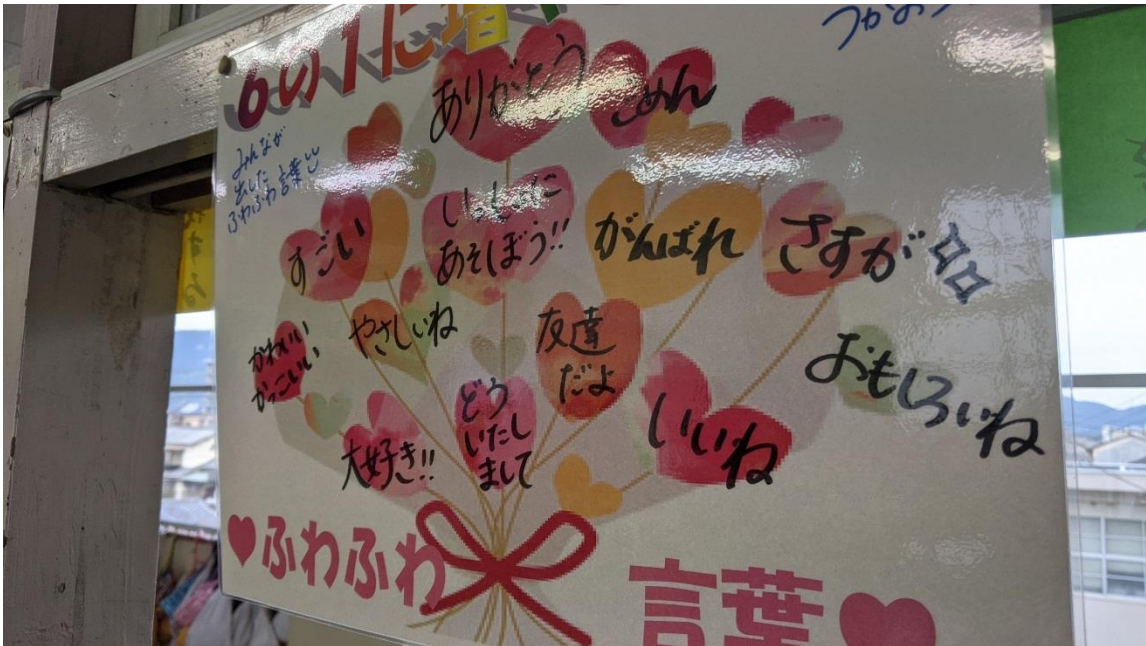 6の1に増
つかおう
みんなが
出した
ふわふわ言葉
ありがとう
ごめん
すごい
いっしょに
あそぼう!!
がんばれ
さすが
かわいい
かっこいい
やさしいね
友達
だよ
おもしろいね
大好き!!
どう
いたし
まして
いいね
♥ふわふわ
言葉♥